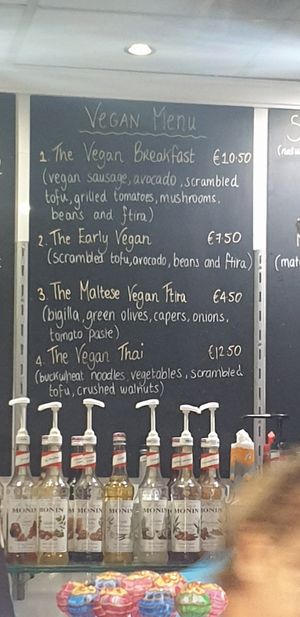 VEGAN MENU
1. The Vegan Breakfast €10.50
(vegan sausage, avocado, scrambled
tofu, grilled tomatoes, mushrooms,
beans and ftira)
2. The Early Vegan €7.50
(scrambled tofu, avocado, beans and ftira)
3. The Maltese Vegan Ftira €4.50
(bigilla, green olives, capers, onions,
tomato paste)
4. The Vegan Thai €12.50
(buckwheat noodles, vegetables, scrambled
tofu, crushed walnuts)
MONIN MONIN MONIN MONIN MONIN MONIN MONIN